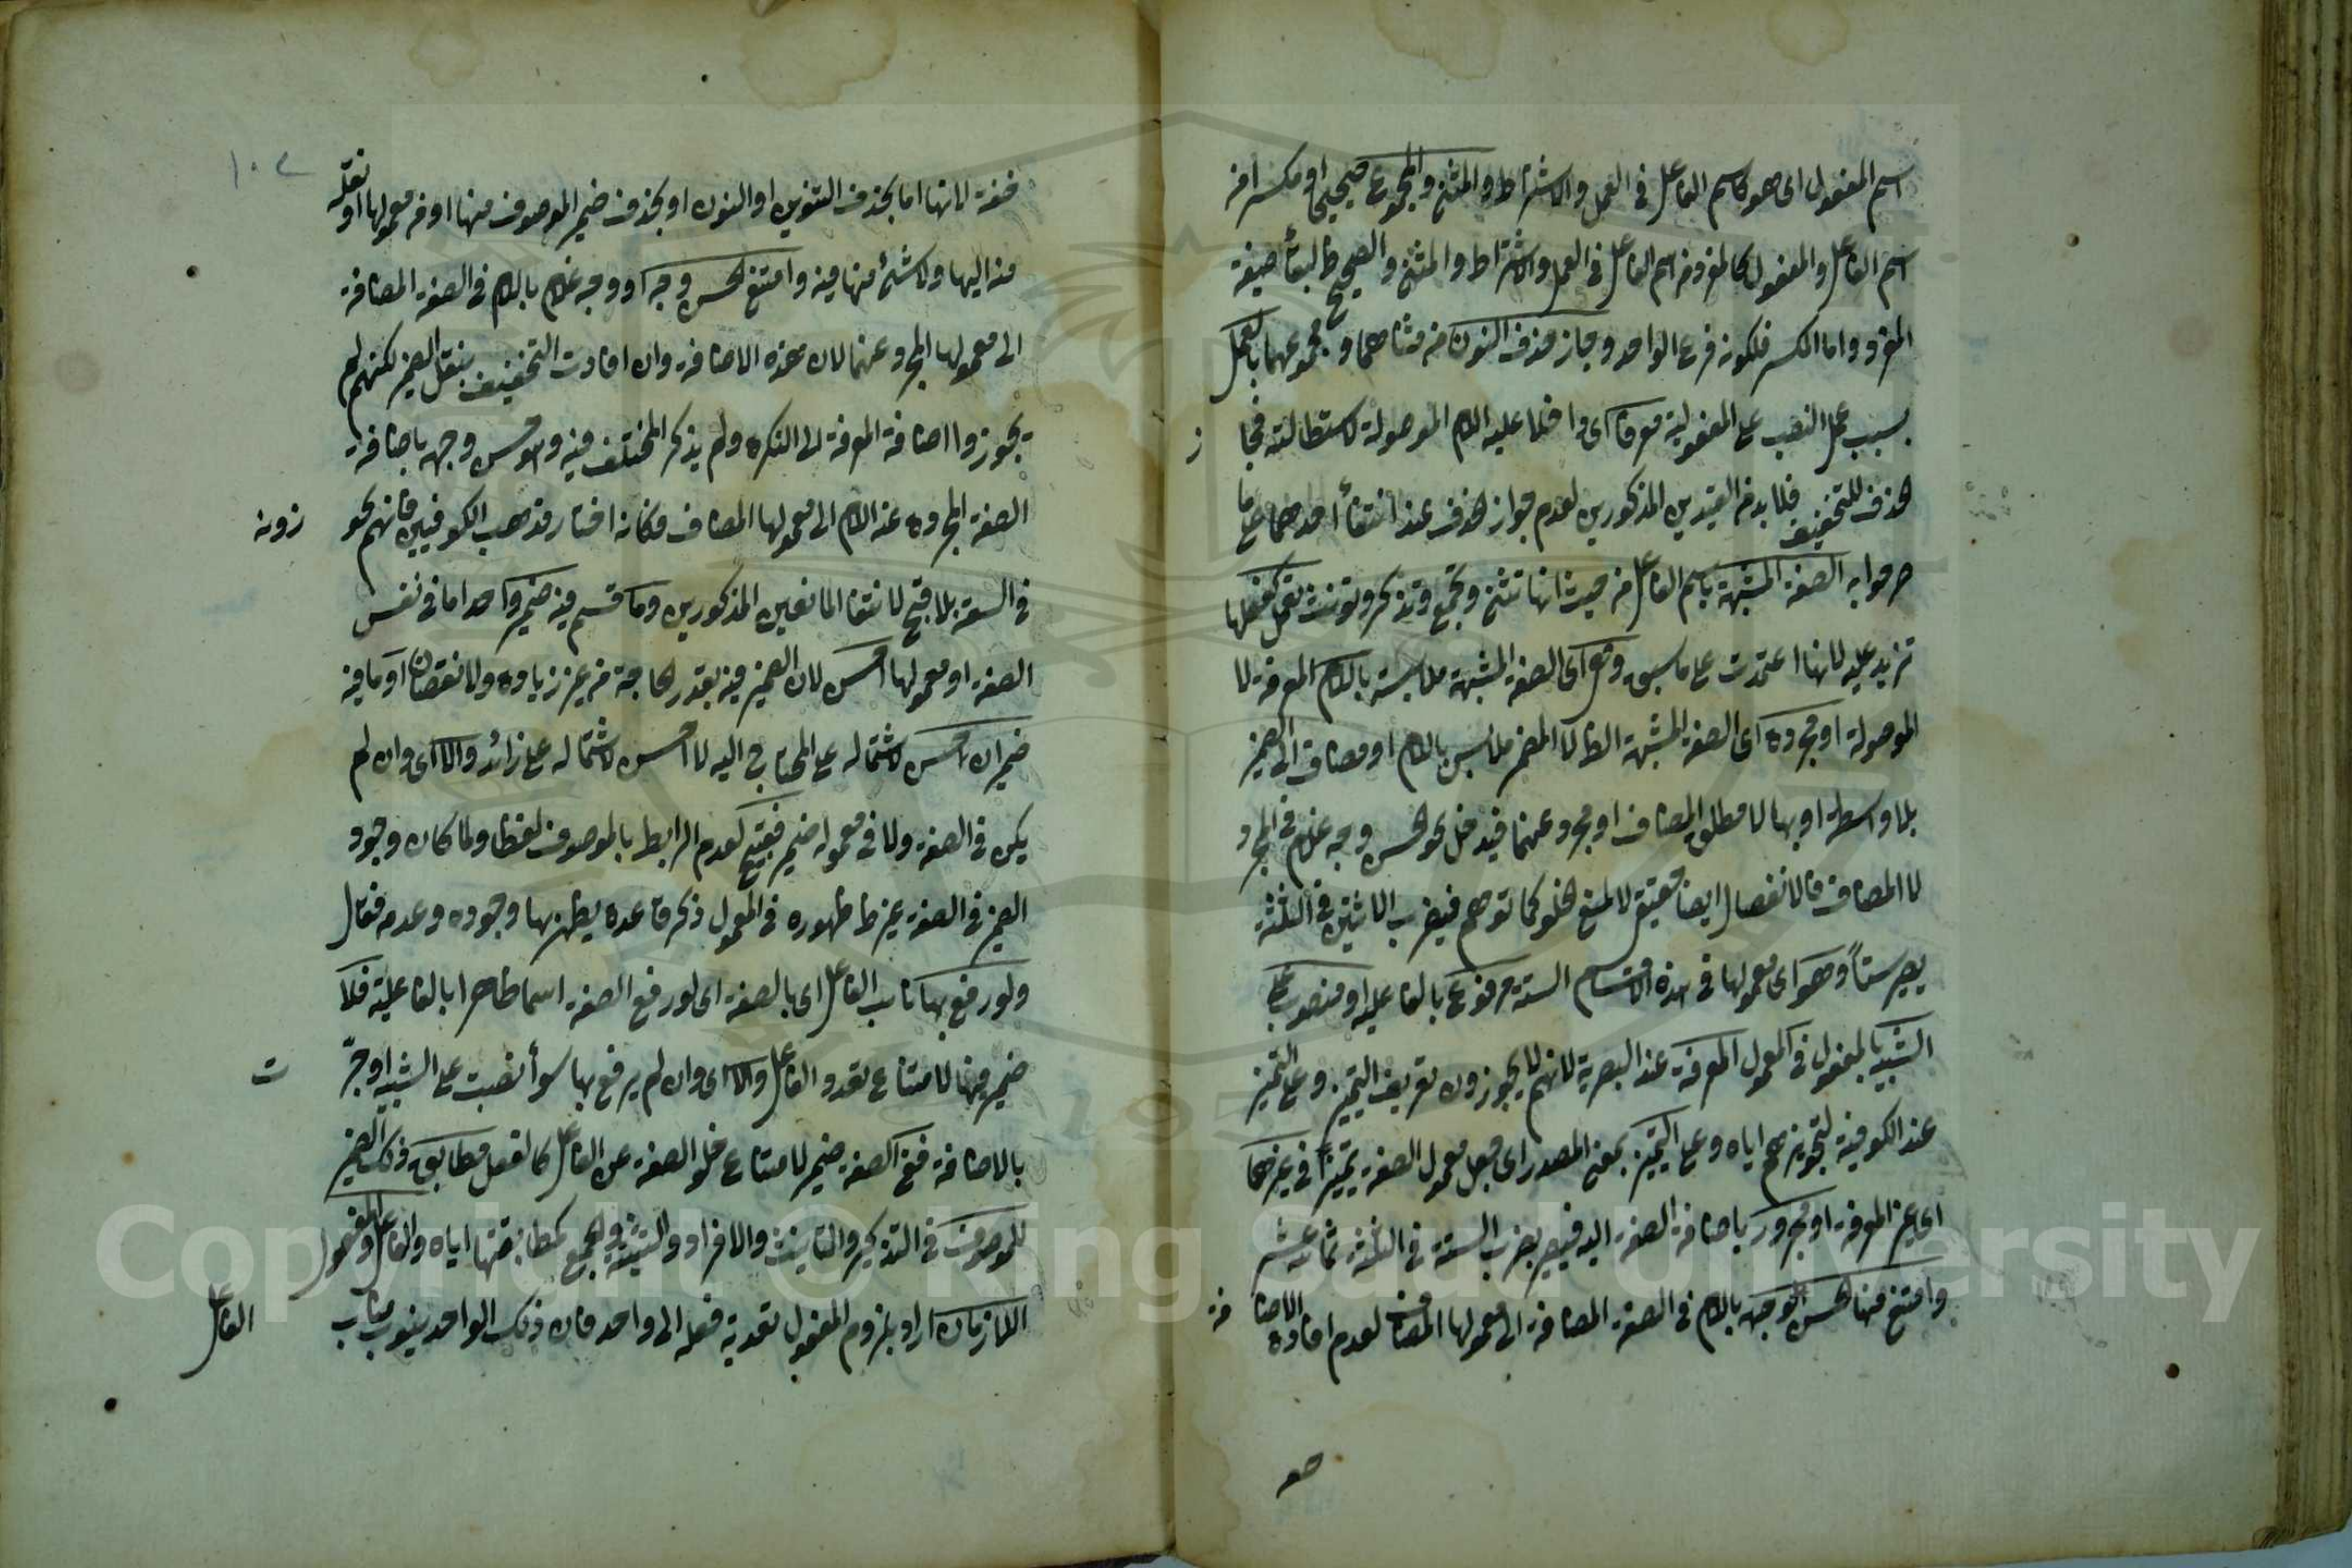 اسم المفعول اى هو كاسم الفاعل فى العمل والاشتراط والمثنى والمجموع صحيحا او مكسرا من
اسم الفاعل والمفعول كالمفرد من اسم الفاعل فى العمل والاشتراط والمثنى والصحيح لبقاء صيغة
المفرد واما المكسر فلكونه فرع الواحد وجاز حذف النون من مثناهما ومجموعهما بالعمل
بسبب عمل النصب على المفعولية معرفا اى داخلا عليه اللام الموصولة لاستطالته فجا ز
الحذف للتخفيف فلا بد من القيدين المذكورين لعدم جواز الحذف عند انتفاء احدهما على ما
صرحوا به الصفة المشبهة باسم الفاعل من حيث انها تثنى وتجمع وتذكر وتؤنث تعمل كفعلها
تزيد عليه لانها اعتمدت على ما سبق وهى اى الصفة المشبهة ملابسة باللام المعرفة لا
الموصولة او مجردة اى الصفة المشبهة المضمر ملابس باللام او مضاف الى الضمير
بلا واسطة او بها لا مطلق المضاف او مجرد عنهما فيدخل نحو الحسن وجه غلام فى المجرد
لا المضاف فالانفصال ايضا حقيقى لا لمنع الخلو كما توهم فيضرب الاثنين فى الثلثة
يصير ستا وهو اى معمولها فى هذه الاقسام الستة مرفوع بالفاعلية او منصوب على
التشبيه بالمفعول فى المعمول المعرفة عند البصرية لانهم لا يجوزون تعريف التميز وعلى التميز
عند الكوفية لتجويزهم اياه وعلى التميز بمعنى المصدر اى جعل معمول الصفة تميزا فى غيرها
اى غير المعرفة او مجرور باضافة الصفة اليه فيصير بضرب الستة فى الثلثة ثمانية عشر
وامتنع منها الحسن وجهه باللام فى الصفة المضافة الى معمولها المضاف لعدم افادة الاضا فة
صو
١٠٢
خفة لانها اما بحذف التنوين او النون او بحذف ضمير الموصوف منها او من معمولها او نقله
منه اليها ولا شئ منها فيه وامتنع الحسن وجه او وجه غلام باللام فى الصفة المضافة
الى معمولها المجرد عنهما لان هذه الاضافة وان افادت التخفيف بنقل الضمير لكنهم لم
يجوزوا اضافة المعرفة الى النكرة ولم يذكر المختلف فيه وهو حسن وجهه باضافة
الصفة المجردة عن اللام الى معمولها المضاف فكانه اختار مذهب الكوفيين فانهم يجو زونه
فى السعة بلا قبح لانتفاء المانعين المذكورين وما قسم فيه ضمير واحد اما فى نفس
الصفة او معمولها احسن لان الضمير فيه بقدر الحاجة من غير زيادة ولا نقصان او ما فيه
ضميران حسن لاشتماله على المحتاج اليه لا احسن لاشتماله على زائد والا اى وان لم
يكن فى الصفة ولا فى معموله ضمير فقبيح لعدم الرابط بالموصوف لفظا ولما كان وجود
الضمير فى الصفة غير ظاهر ظهوره فى المعمول ذكر قاعدة يظهر بها وجوده وعدمه فقال
ولو رفع بها نائب الفاعل اى بالصفة اى لو رفع الصفة اسما ظاهرا بالفاعلية فلا
ضمير فيها لامتناع تعدد الفاعل والا اى وان لم يرفع بها سواء نصبت على التشبيه او جر ت
بالاضافة ففى الصفة ضمير لامتناع خلو الصفة عن الفاعل كالفعل مطابق ذلك الضمير
للموصوف فى التذكير والتانيث والافراد والتثنية والجمع كمطابقتها اياه والفاعل والمفعول
اللازمان اراد بلزوم المفعول تعدية فعله الى واحد فان ذلك الواحد ينوب مناب
الفاعل
Copyright © King Saud University